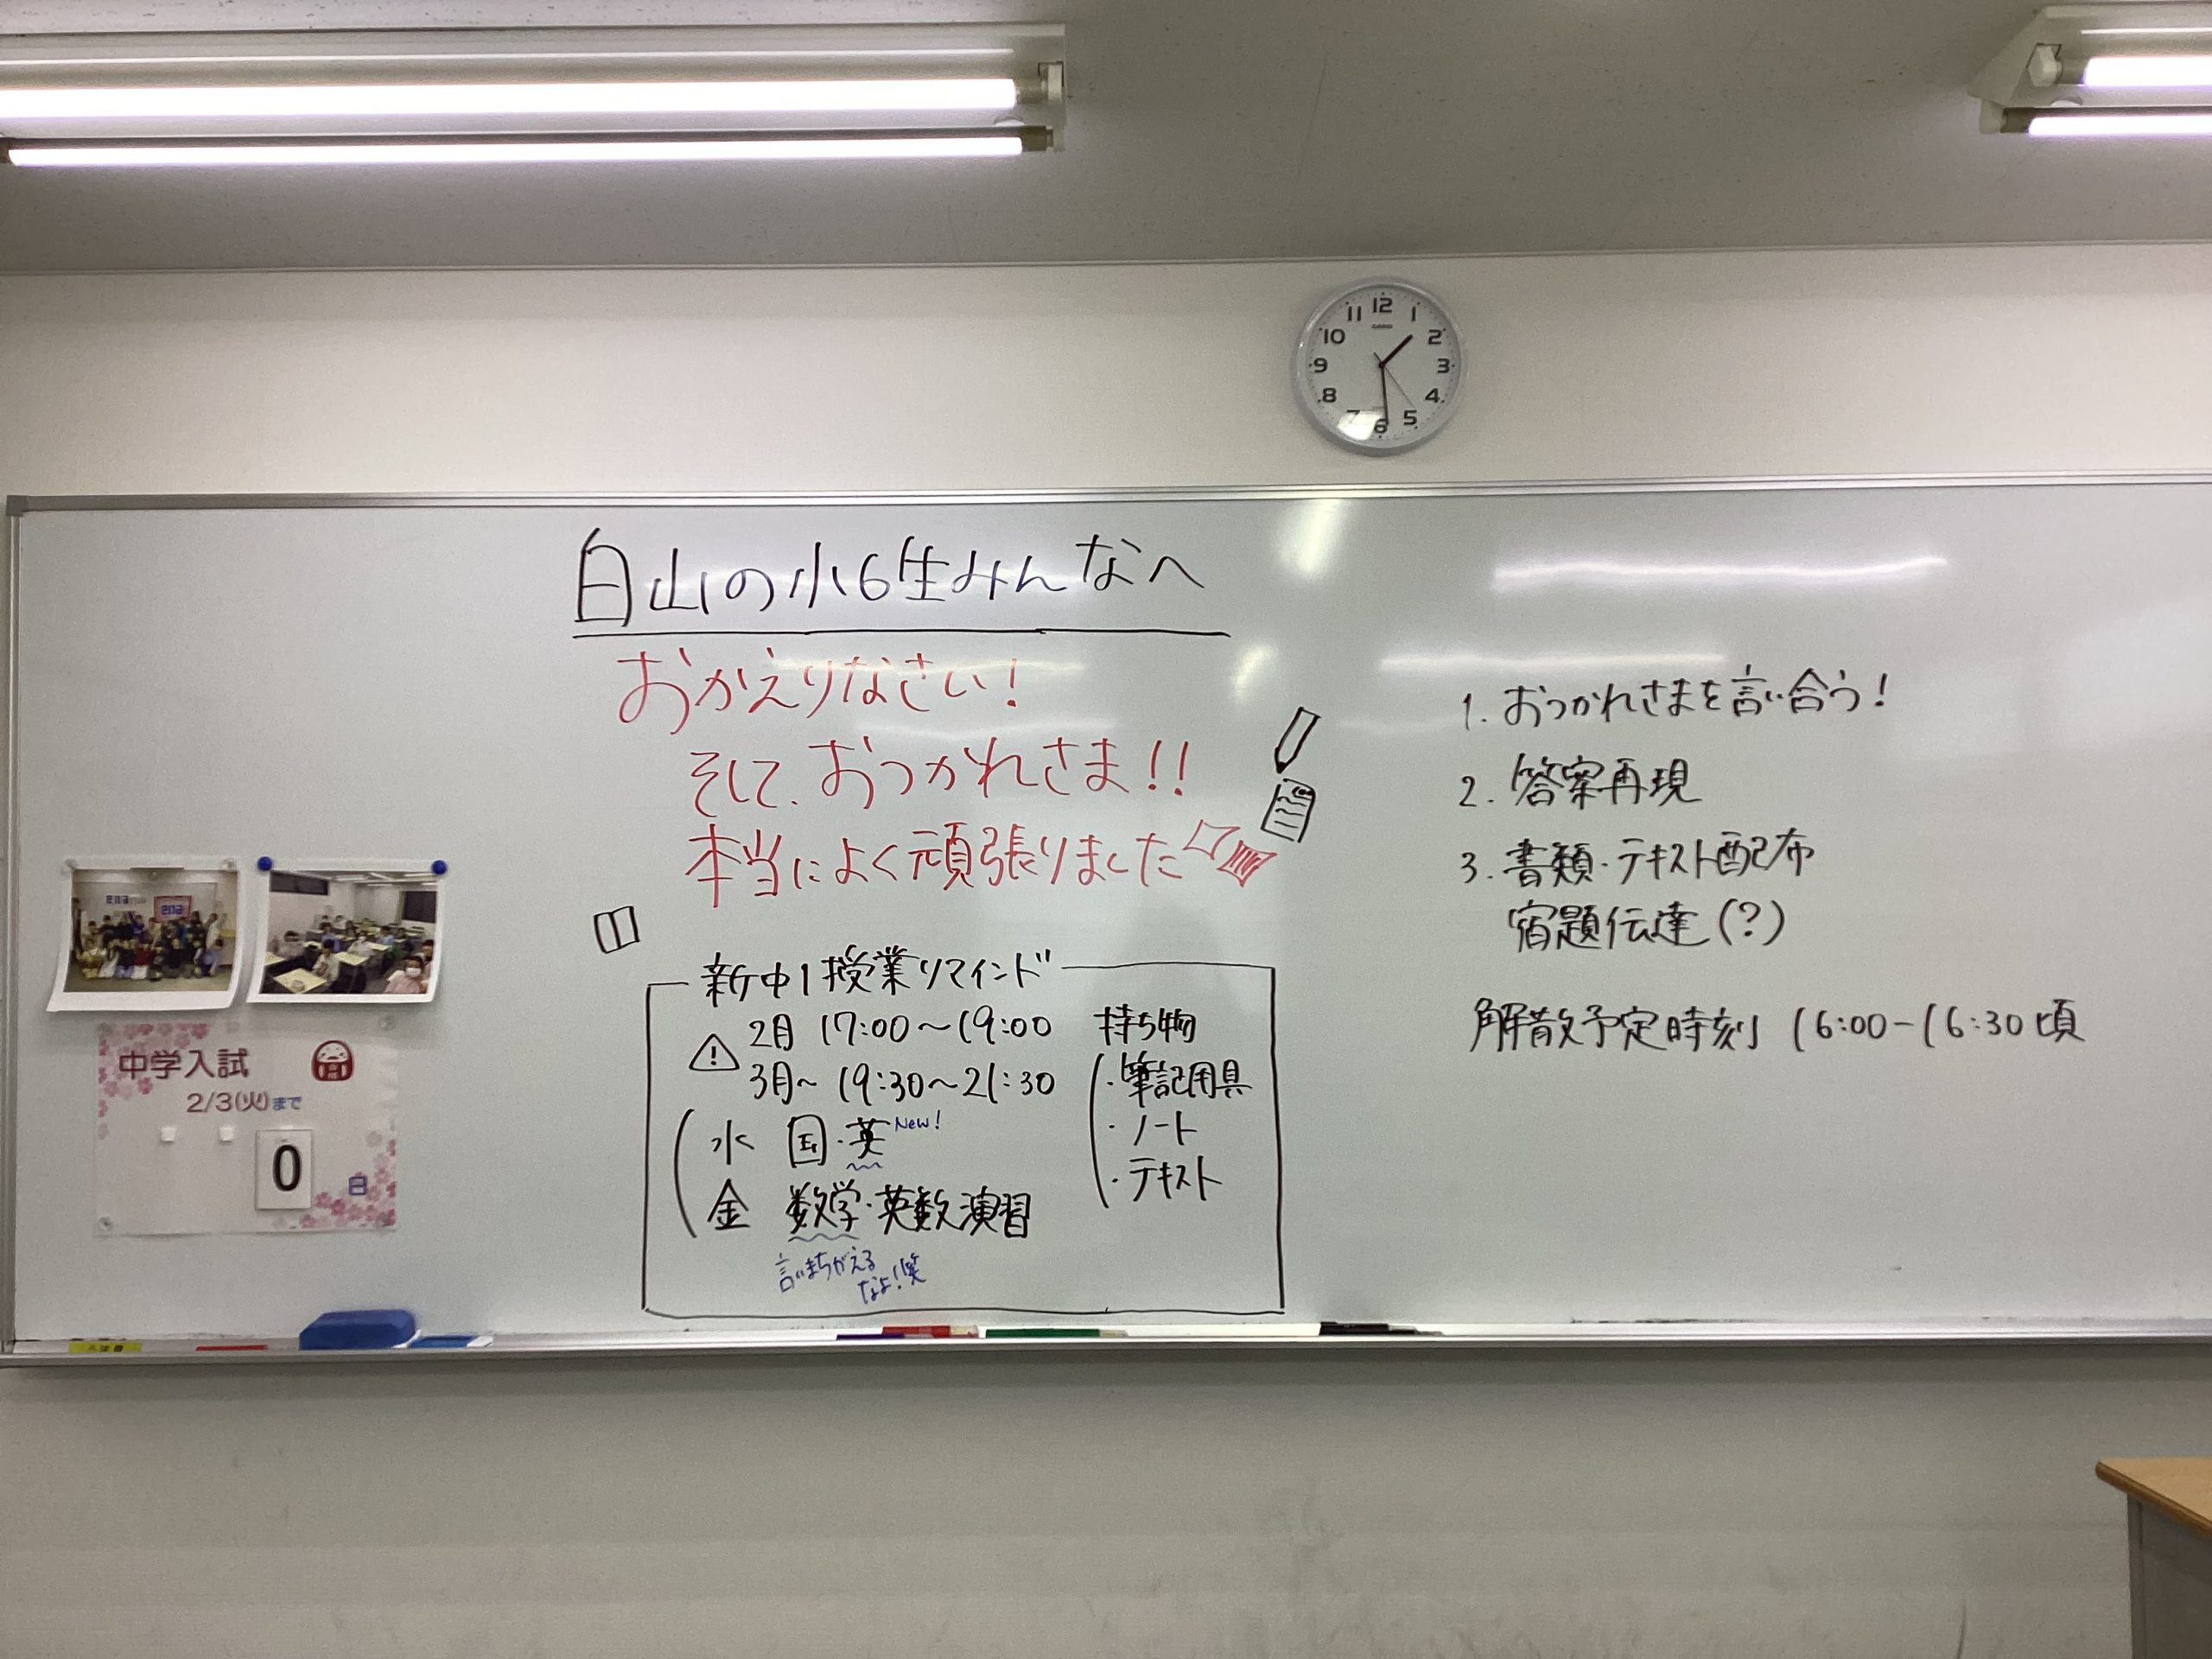 12
1
2
3
4
5
6
7
8
9
10
11
CASIO
白山の小6生みんなへ
おかえりなさい！
そして、おつかれさま！！
本当によく頑張りました
新中1授業リマインド
2月 17:00〜19:00
3月〜 19:30〜21:30
水 国・英 New!
金 数学・英数演習
言いまちがえる
なよ！笑
持ち物
・筆記用具
・ノート
・テキスト
1. おつかれさまを言い合う！
2. 答案再現
3. 書類・テキスト配布
宿題伝達(？)
解散予定時刻 16:00-16:30頃
ena
ena
中学入試
2/3(火)まで
0
日